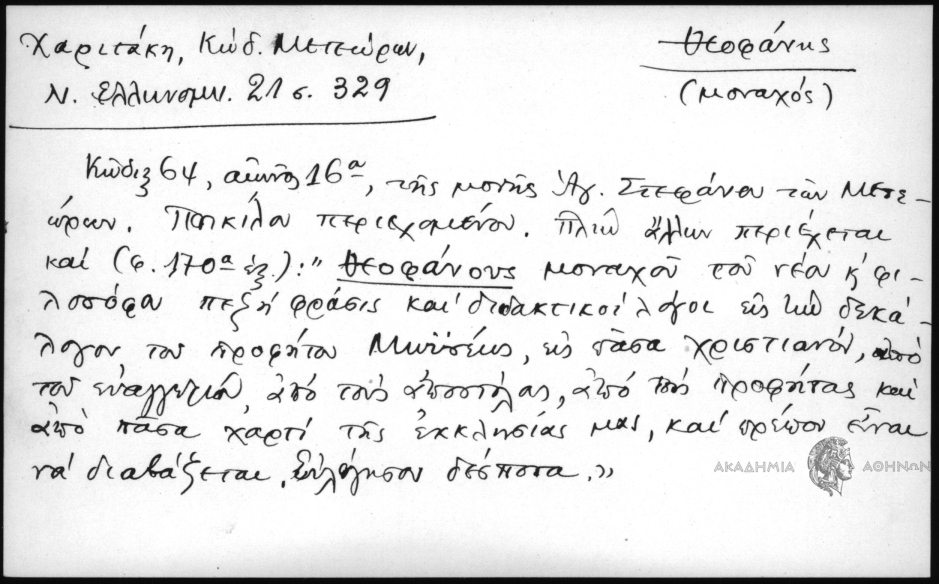 Χαριτάκη, Κώδ. Μετεώρων,
Ν. Ελληνομν. 21 σ. 329
Θεοφάνης
(μοναχός)
Κώδιξ 64, αἰῶνος 16ου, τῆς μονῆς Ἁγ. Στεφάνου τῶν Μετε-
ώρων. Ποικίλου περιεχομένου. Πλὴν ἄλλων περιέχεται
καί (φ. 170α ἑξ.): "Θεοφάνους μοναχοῦ τοῦ νέου κ' φι-
λοσόφου πεζή φράσις καί διδακτικοί λόγοι εἰς τὸν δεκά-
λογον του προφήτου Μωϋσέως, εἰς πᾶσα χριστιανόν, ἀπό
τοῦ εὐαγγελίου, ἀπό τούς ἀποστόλους, ἀπό τούς προφήτας καί
ἀπὸ πᾶσα χαρτί τῆς ἐκκλησίας μας, καί πρέπον εἶναι
νά διαβάζεται. Εὐλόγησον δέσποτα."
ΑΚΑΔΗΜΙΑ ΑΘΗΝΩΝ